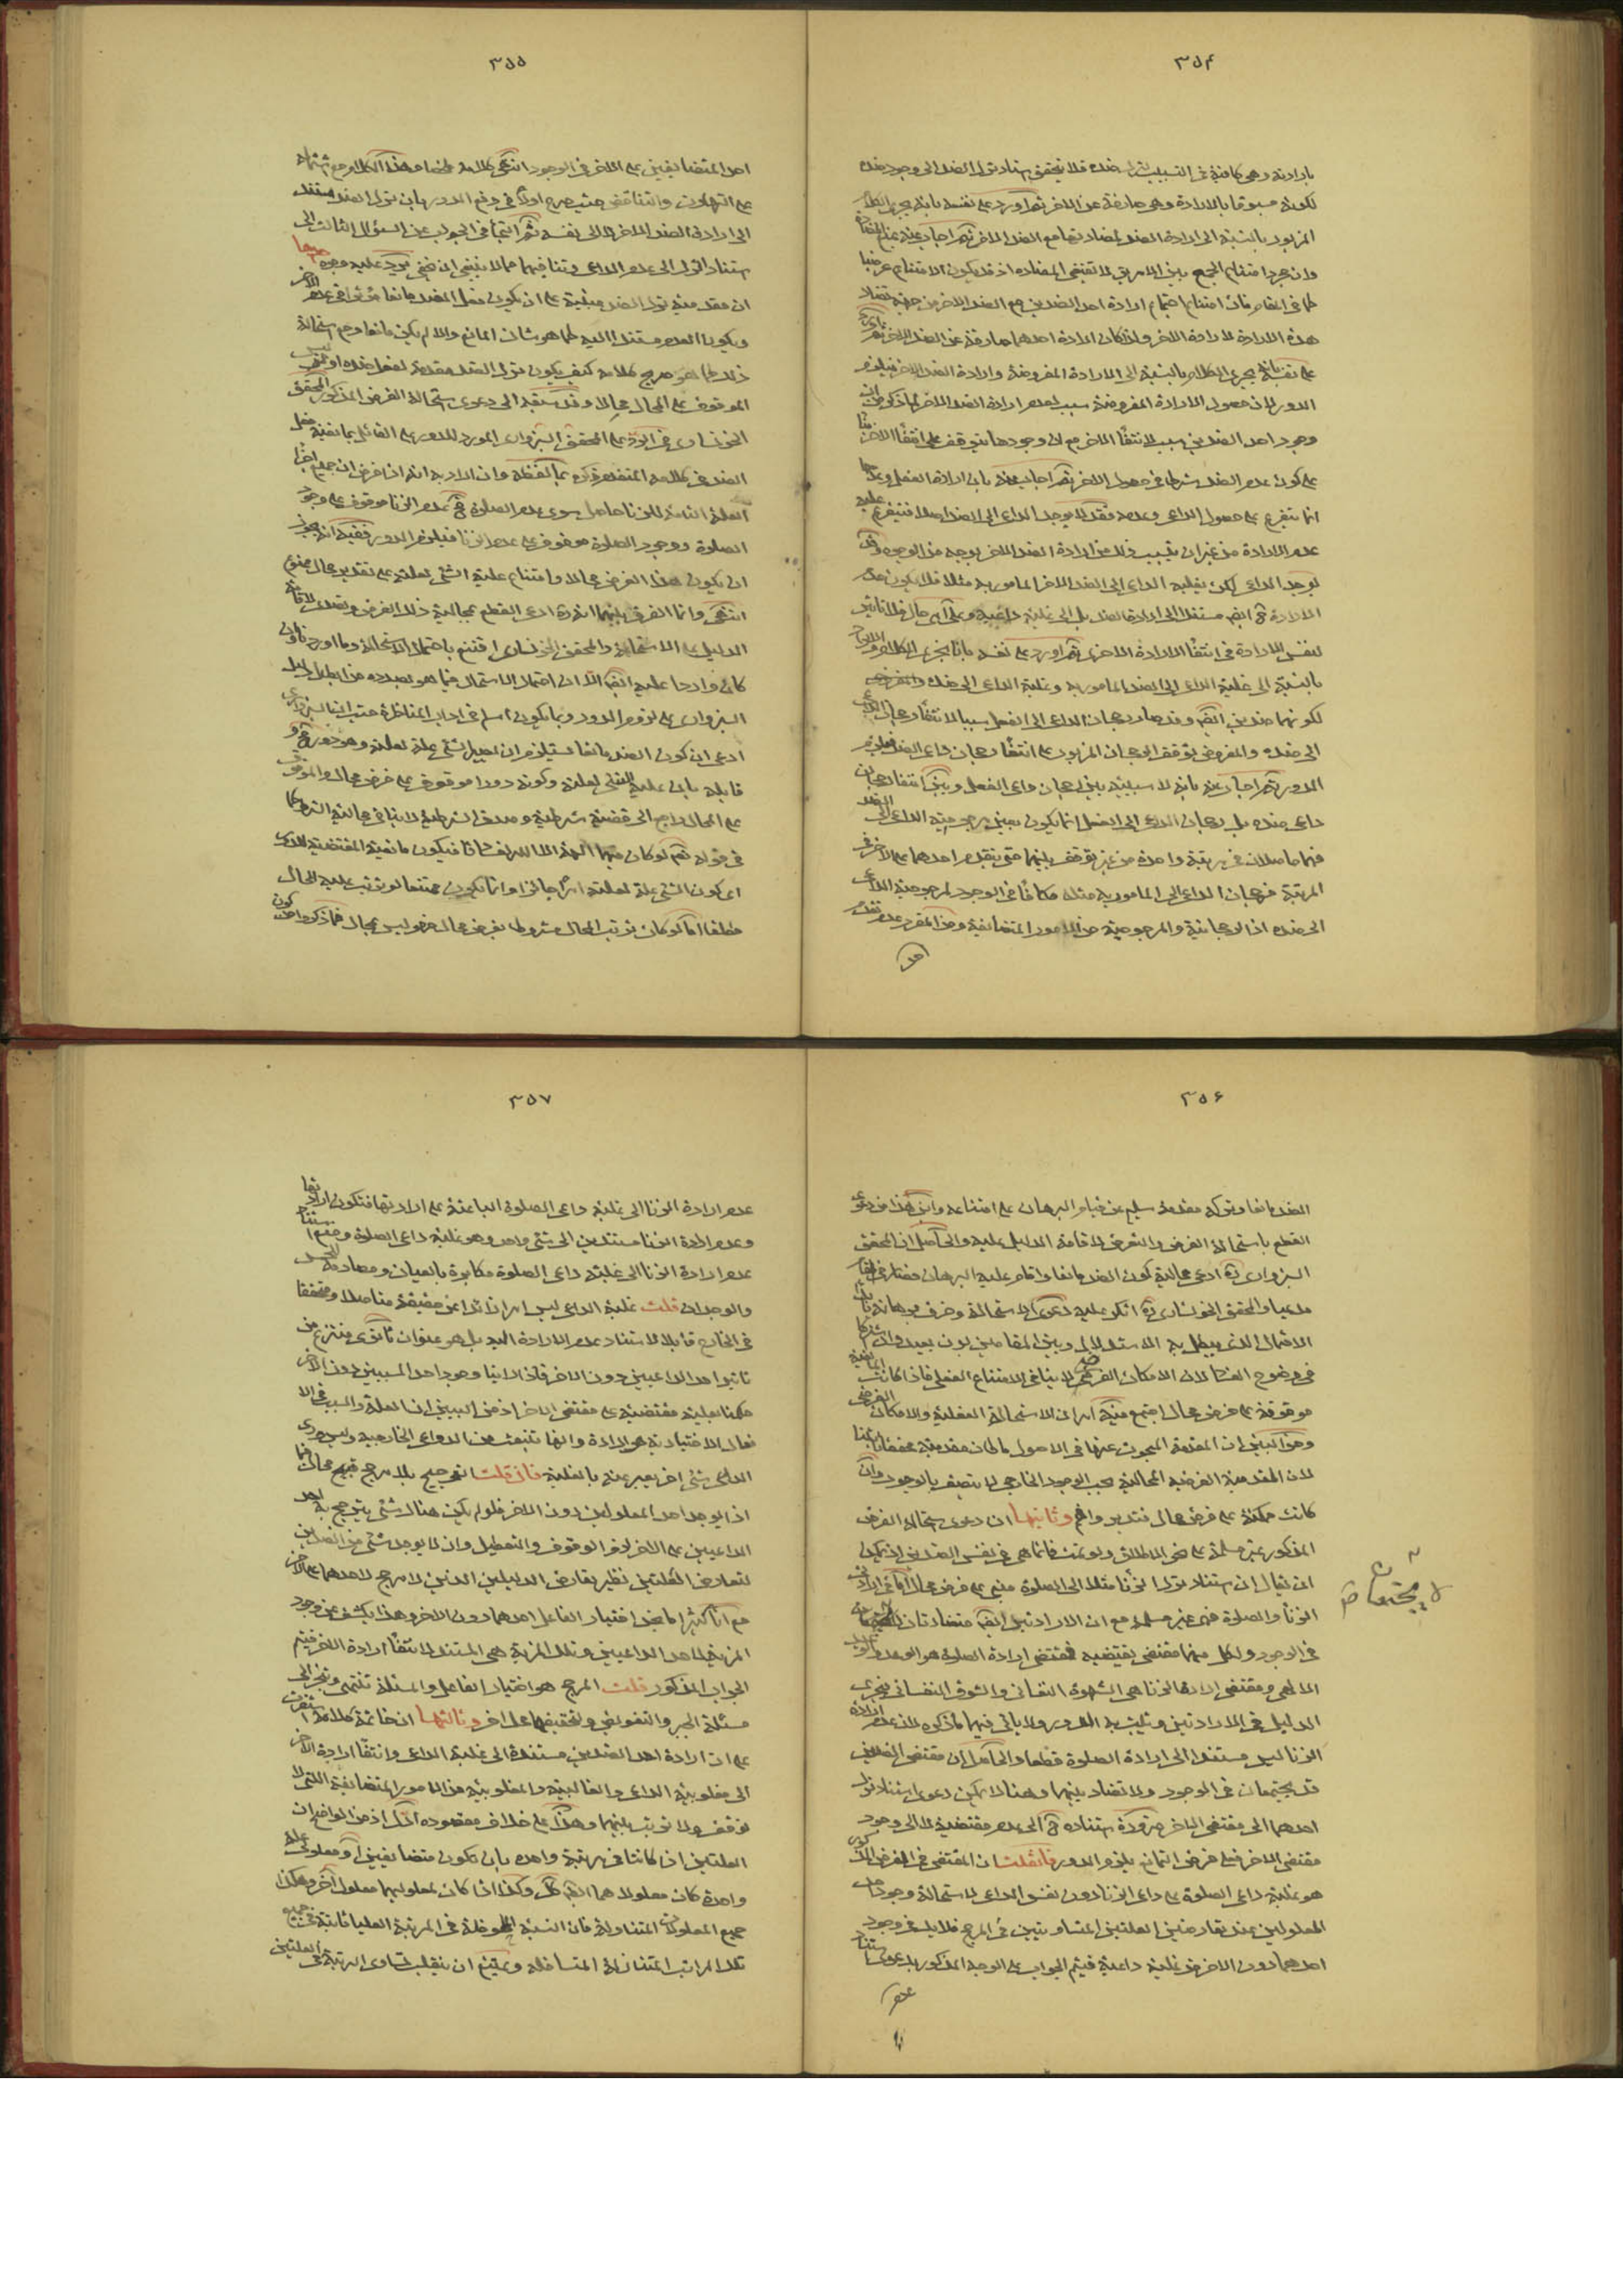 ٣٥۴
بارادته وهى كافية فى التسبيب لترك ضده فلا يتحقق استناد ترك الضد الى وجود ضده
لكونه مسبوقا بالارادة وهى صارفة عن الاخر ثم اورد على نفسه بانه يجرى الكلام
المزبور بالنسبة الى ارادة الضد لمضادتها مع الضد الاخر ثم اجاب عنه بمنع المضادة
وان مجرد امتناع الجمع بين الامرين لا تقتضى المضادة اذ قد يكون الامتناع عرضيا
كما فى المقام فان امتناع اجتماع ارادة احد الضدين مع الضد الاخر من جهة تضاد
هذه الارادة لارادة الاخر ولذا كان ارادة احدهما صارفة عن الضد الاخر ثم اورد
على نفسه بانه يجرى الكلام بالنسبة الى الارادة المفروضة وارادة الضد الاخر فيلزم
الدور لان حصول الارادة المفروضة سبب لعدم ارادة الضد الاخر لما ذكر من ان
وجود احد الضدين سبب لانتفاء الاخر مع ان وجودها يتوقف على انتفاء الاخر بناء
على كون عدم الضد شرطا فى حصول الاخر ثم اجاب عنه بان ارادة الفعل وعدمها
انما يتفرع على حصول الداعى وعدمه فقد لا يوجد الداعى الى الضد اصلا فيتفرع عليه
عدم الارادة من غير ان يتسبب ذلك من ارادة الضد الاخر بوجه من الوجوه وقد
يوجد الداعى لكن يغلبه الداعى الى الضد الاخر المامور به مثلا فلا يكون عدم
الارادة ح ايضا مستندا الى ارادة الضد بل الى غلبة داعيه وعلى اى حال فلا تاثير
لنفس الارادة فى انتفاء الارادة الاخرى ثم اورد على نفسه بانا نجرى الكلام والايراد
بالنسبة الى غلبة الداعى الى الضد المامور به وغلبة الداعى الى ضده
لكونهما ضدين ايضا وقد صار رجحان الداعى الى الفعل سببا لانتفاء رجحان الداعى
الى ضده والمفروض توقف الرجحان المزبور على انتفاء رجحان داعى الضد فيلزم
الدور ثم اجاب عنه بانه لا سببية بين رجحان داعى الفعل وبين انتفاء رجحان
داعى ضده بل رجحان الداعى الى الفعل انما يكون بعين مرجوحية الداعى الى الضد
فهما حاصلان فى مرتبة واحدة من غير توقف بينهما حتى يتقدم احدهما على الاخر فى
المرتبة فرجحان الداعى الى المامور به مثلا مكافئا فى الوجود لمرجوحية الداعى
الى ضده اذ الراجحية والمرجوحية من الامور المتضائفة ومن المقرر عدم تقدم
احد
٣٥٥
احد المتضايفين على الاخر فى الوجود انتهى كلامه ملخصا وهذا الكلام مع اشتماله
على التهافت والتناقض حيث صرح اولا فى دفع الدور بان ترك الضد مستند
الى ارادة الضد الاخر لا الى نفسه ثم التجأ فى الجواب عن السؤال الثالث الى
استناد الترك الى عدم الداعى وتنافيهما مما لا ينبغى ان يخفى يرد عليه وجوه احدها
ان مقدمية ترك الضد مبنية على ان يكون فعل الضد مانعا مؤثرا فى عدم الاخر
ويكون العدم مستندا اليه كما هو شان المانع والا لم يكن مانعا ومع استحالة
ذلك كما هو صريح كلامه كيف يكون ترك الضد مقدمة لفعل ضده اذ ليس
الموقوف على المحال محالا وقد سبقه الى دعوى استحالة الفرض المذكور المحقق
الخونسارى فى الرد على المحقق السبزوارى المورد للدور على القائل بمانعية فعل
الضد فى كلامه المتقدم ذكره بما لفظه وان اراد به انه اذا فرض ان جميع اجزاء
العلة التامة للزنا حاصل سوى عدم الصلوة ح عدم الزنا موقوف على وجود
الصلوة ووجود الصلوة موقوف على عدم الزنا فيلزم الدور ففيه انه يجوز
ان يكون هذا الفرض محالا وامتناع علية الشئ لعلته على تقدير محال ممنوع
انتهى وانما الفرق بينهما انه ره ادعى القطع بمحالية ذلك الفرض وتصدى لاقامة
الدليل على الاستحالة والمحقق الخونسارى اقتنع باحتمال الاستحالة وما اورد ناه
كان واردا عليه ايضا الا ان احتمال الاستحالة فيما هو بصدده من ابطال دليل
السبزوارى على لزوم الدور ربما يكون اسلم فى اداب المناظرة حيث ان السبزوارى
ادعى ان كون الضد مانعا يستلزم ان يصير الشئ علة لعلته وهو دور وهو
قابله بان علية الشئ لعلته وكونه دورا موقوف على فرض محال والموقوف
على المحال راجع الى قضية شرطية وصدق الشرطية لا ينافى محالية الشرط كما
فى قوله تعالى لو كان فيهما الهة الا الله لفسدتا فيكون مانعية المقتضية للدور
اى كون الشئ علة لعلته امرا جائزا وانما يكون ممتنعا لو ترتب عليه المحال
مطلقا اما لو كان ترتب المحال مشروطا بفرض محال فهو ليس بمحال فما ذكره احد كون
٣٥۶
الضد مانعا وتركه مقدمة سليم عن قيام البرهان على امتناعه واين هذا من دعوى
القطع باستحالة الفرض والتعرض لاقامة الدليل عليه والحاصل ان المحقق
السبزوارى ره ادعى محالية كون الضد مانعا واقام عليه البرهان فصار فى مقام
مدعيا والمحقق الخونسارى ره انكر عليه دعوى الاستحالة وخرق برهانه بان
الاحتمال الذى يبطل به الاستدلال وبين المقامين بون بعيد وان شاركا
فى وضوح الفساد لان الامكان الفرضى لا ينافى الامتناع العقلى فاذا كانت المانعية
موقوفة على فرض محال اجتمع فيه امران الاستحالة العقلية والامكان الفرضى
ومن البين ان المقدمة المبحوث عنها فى الاصول ما كان مقدميته محققا ثابتا
لان المقدمية الفرضية المحالية بحسب الوجود الخارجى لا يتصف بالوجود وان
كانت ممكنة على فرض محال فتدبر وافهم وثانيها ان دعوى استحالة الفرض
المذكور غير مسلمة على نحو الاطلاق ولو تمت فانما هى فى نفس الضدين اذ يمكن
ان يقال ان استناد ترك الزنا مثلا الى الصلوة مبنى على فرض محال اما فى ارادتى
الزنا والصلوة فهى غير مسلمة مع ان الارادتين ايضا متضادتان
لا يجتمعان ص
فى الوجود ولكل منهما مقتضى يقتضيه فمقتضى ارادة الصلوة هو الوعد والوعيد
الالهى ومقتضى ارادة الزنا هى الشهوة النفسانى والشوق النفسانى فيجرى
الدليل فى الارادتين ويثبت به الدور ولا ياتى فيهما ما ذكره لان عدم ارادة
الزنا ليس مستندا الى ارادة الصلوة قطعا والحاصل ان مقتضى الضدين
قد يجتمعان فى الوجود ولا تضاد بينهما وهنا لا يمكن دعوى استناد ترك
احدهما الى مقتضى الاخر ضرورة استناده ح الى عدم مقتضيه لا الى وجود
مقتضى الاخر فعلى فرض التمانع يلزم الدور فان قلت ان المقتضى فى الفرض المذكور
هو غلبة داعى الصلوة على داعى الزنا دون نفس الداعى لاستحالة وجود احد
المعلولين عند تعارض العلتين المتساويتين فى المرجح فلا بد فى وجود
احدهما دون الاخر من غلبة داعيه فيتم الجواب على الوجه المذكور بدعوى استناد
عدم
٣٥٧
عدم ارادة الزنا الى غلبة داعى الصلوة الباعثة على ارادتها فتكون ارادتها
وعدم ارادة الزنا مستندين الى شئ واحد وهو غلبة داعى الصلوة ومنع استناد
عدم ارادة الزنا الى غلبة داعى الصلوة مكابرة بالعيان ومصادمة للحس
والوجدان قلت غلبة الداعى ليس امرا زائدا عن حقيقة متاصلا ومحققا
فى الخارج قابلا لاستناد عدم الارادة اليه بل هو عنوان ثانوى منتزع من
تاثير احد الداعيين دون الاخر فاذا راينا وجود احد المسببين دون الاخر
حكمنا بغلبة مقتضيه على مقتضى الاخر اذ من البين ان العلة والسبب فى الا
فعال الاختيارية هو الارادة وانها تنبعث من الدواعى الخارجية وليس وراء
الداعى شئ اخر يعبر عنه بالغلبة فان قلت الترجيح بلا مرجح قبيح محال فما
اذا وجد احد المعلولين دون الاخر فلو لم يكن هناك شئ يترجح به احد
الداعيين على الاخر لزم الوقوف والتعطيل وان لا يوجد شئ من الضدين
لتعارض العلتين نظير تعارض الدليلين الذين لا مرجح لاحدهما على الاخر
مع انا كثيرا ما نجد اختيار الفاعل احدهما دون الاخر وهذا يكشف عن وجود
المزية لاحد الداعيين وتلك المزية هى المستند لانتفاء ارادة الاخر فيتم
الجواب المذكور قلت المرجح هو اختيار الفاعل والمسئلة تنتهى وتنجر الى
مسئلة الجبر والتفويض وتحقيقها محل اخر وثالثها ان خاتمة كلامه استقرت
على ان ارادة احد الضدين مستندة الى غلبة الداعى وانتفاء ارادة الاخر
الى مغلوبية الداعى والغالبية والمغلوبية من الامور المتضايفة اللتى لا
توقف ولا ترتب بينهما وهذا على خلاف مقصوده ادل اذ من الواضح ان
العلتين اذا كانتا فى مرتبة واحدة بان تكون متضايفين او معلولى علة
واحدة كان معلولاهما ايضا كك وكذا اذا كان لمعلوليهما معلول آخر وهكذا
جميع المعلولات المتنازلة فان النسبة الملحوظة فى المرتبة العليا ثابتة فى جميع
تلك المراتب المتنازلة المتسافلة ويمتنع ان ينقلب تساوى الرتبة فى العلتين